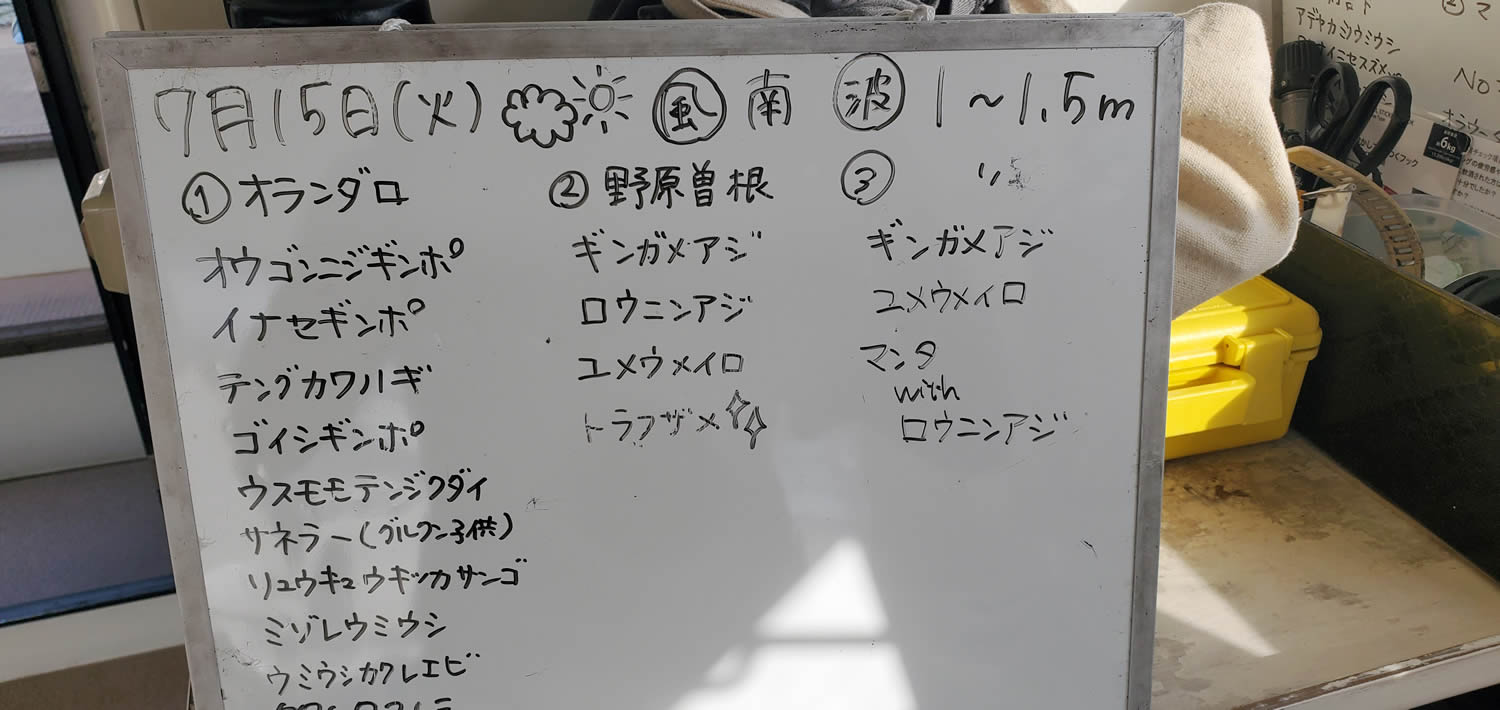 7月15日(火) 風 南 波 1~1.5m
① オランダロ
オウゴンニジギンポ
イナセギンポ
テングカワハギ
ゴイシギンポ
ウスモモテンジクダイ
サネラー(グルクン子供)
リュウキュウキッカサンゴ
ミゾレウミウシ
ウミウシカクレエビ
② 野原曽根
ギンガメアジ
ロウニンアジ
ユメウメイロ
トラフザメ
③ 〃
ギンガメアジ
ユメウメイロ
マンタ
with
ロウニンアジ
アデヤカミノウミウシ
約6kg